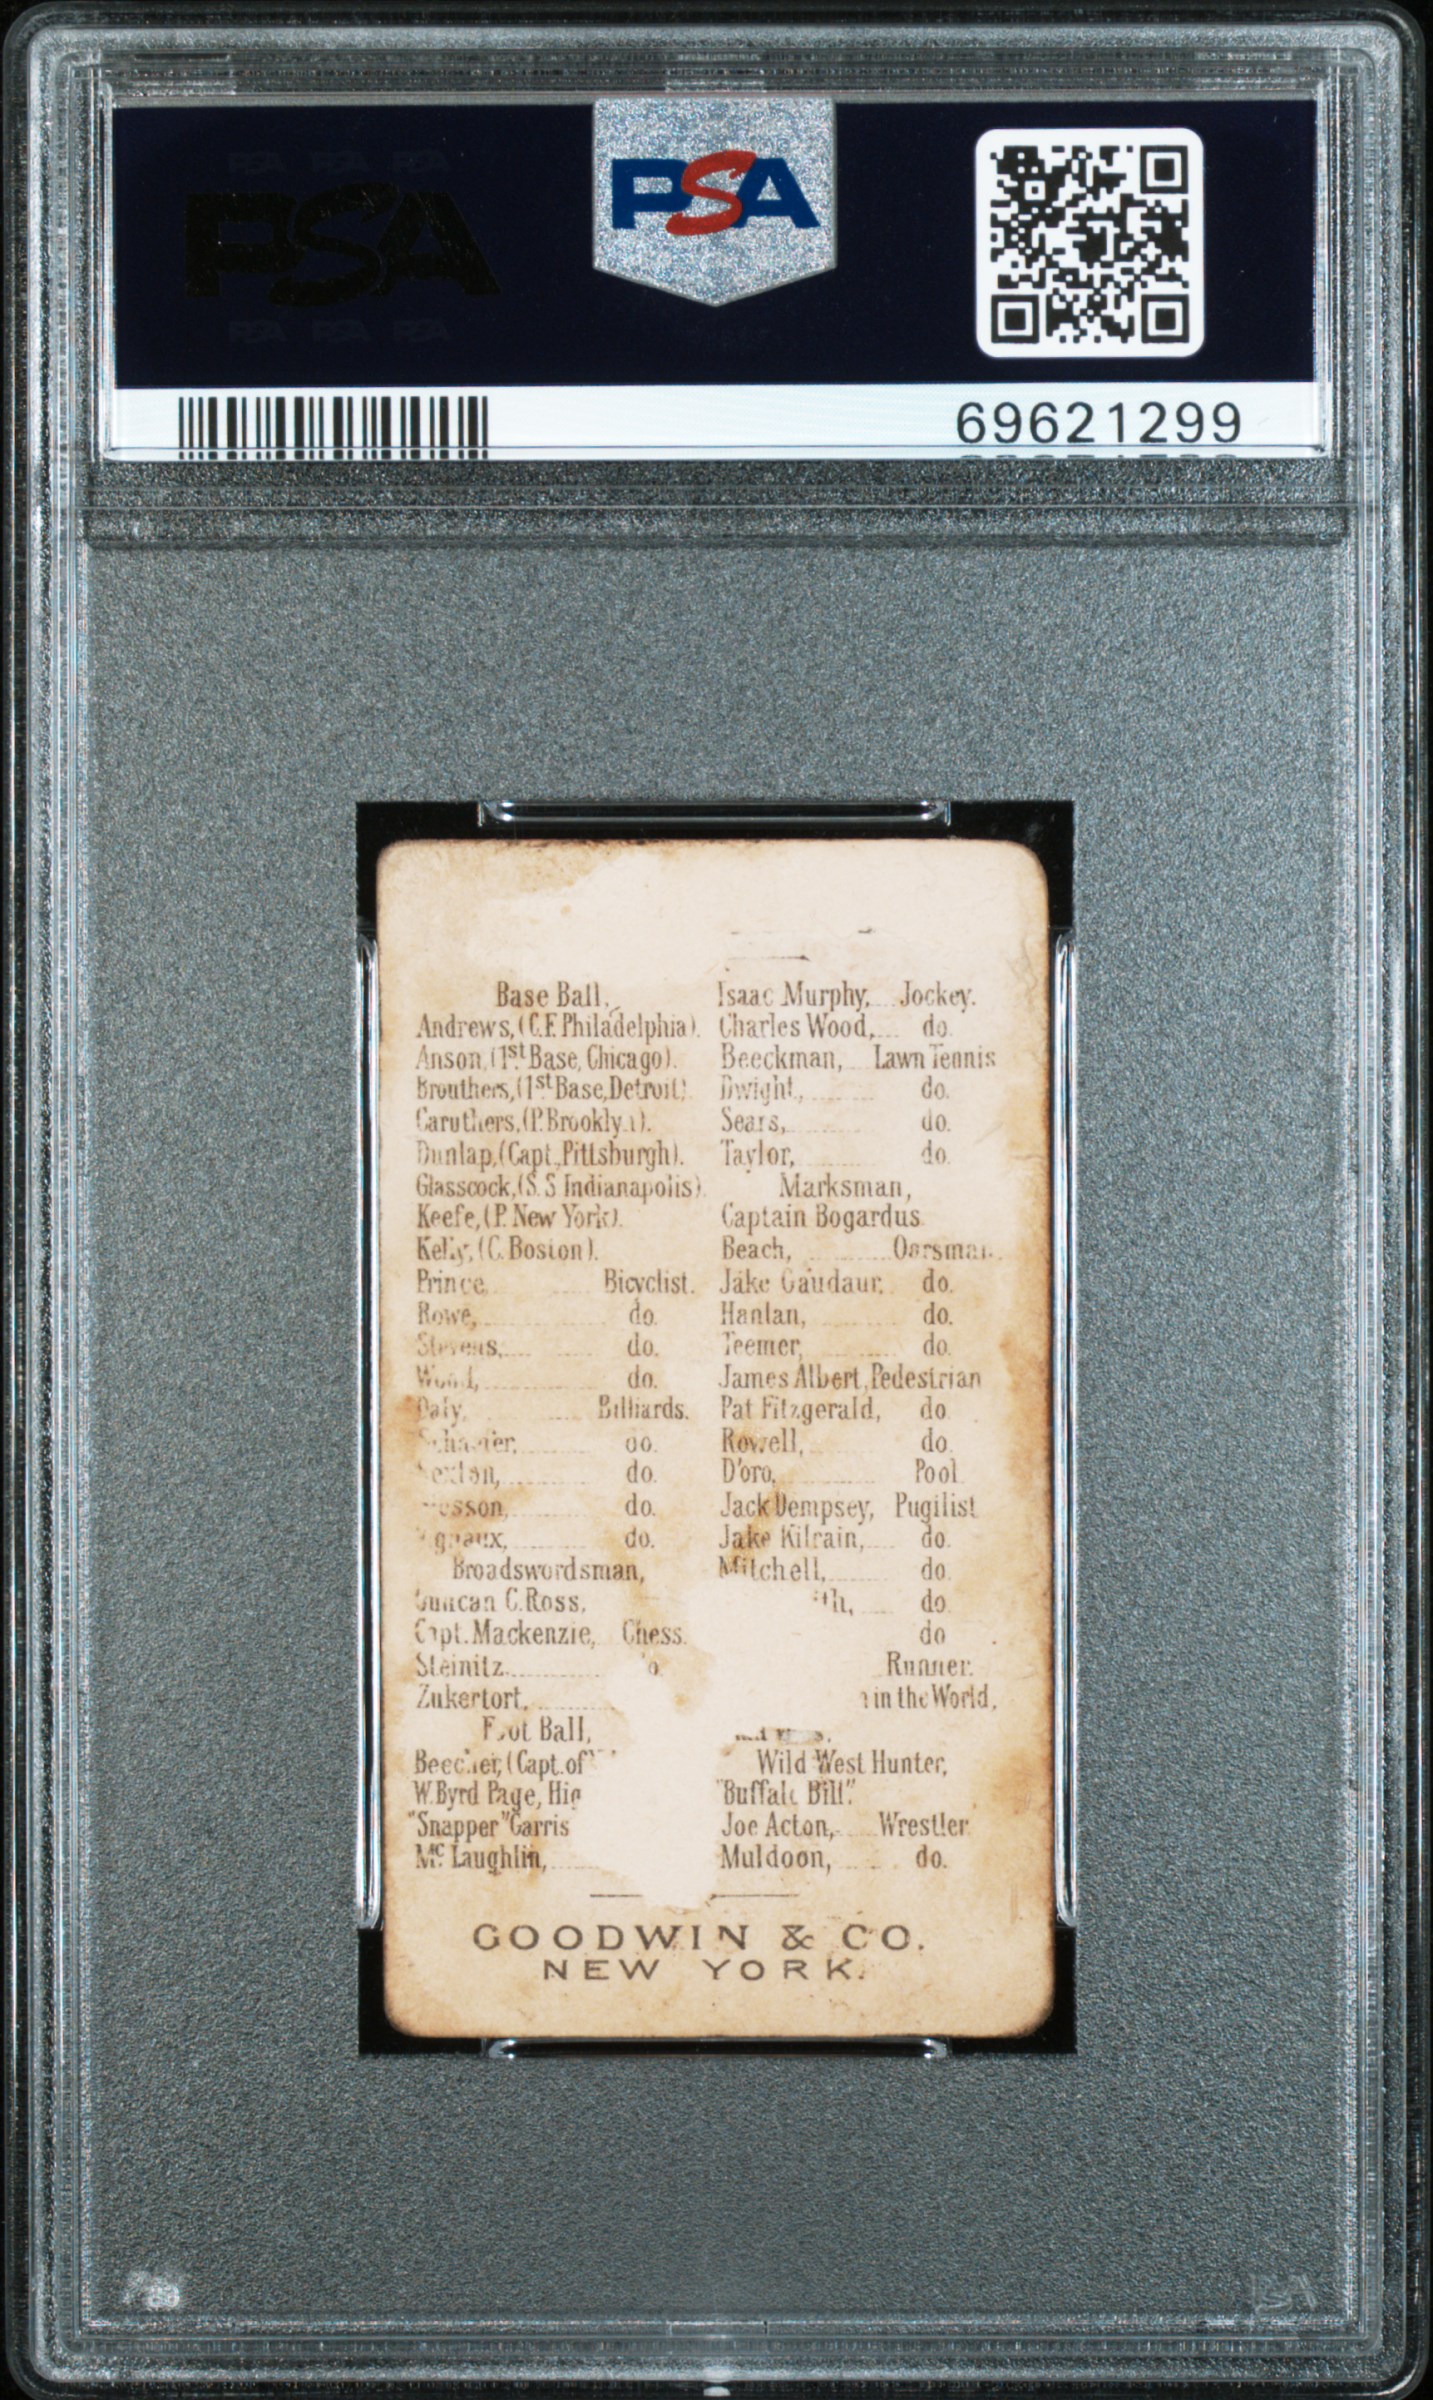 PSA
PSA
69621299
Base Ball,
Andrews, (C.F. Philadelphia).
Anson, (1st Base, Chicago).
Brouthers, (1st Base, Detroit).
Caruthers, (P. Brooklyn).
Dunlap, (Capt. Pittsburgh).
Glasscock, (S.S. Indianapolis).
Keefe, (P. New York).
Kelly, (C. Boston).
Prince, Bicyclist.
Rowe, do.
Stevens, do.
Wood, do.
Daly, Billiards.
do.
do.
do.
do.
Broadswordsman,
Duncan C. Ross.
Capt. Mackenzie, Chess.
Steinitz
Zukertort,
Foot Ball,
Beecher, (Capt. of
W. Byrd Page, Hig
"Snapper" Garris
Mc Laughlin,
Isaac Murphy, Jockey.
Charles Wood, do.
Beeckman, Lawn Tennis
Dwight, do.
Sears, do.
Taylor, do.
Marksman,
Captain Bogardus
Beach, Oarsman.
Jake Gaudaur, do.
Hanlan, do.
Teemer, do.
James Albert, Pedestrian
Pat Fitzgerald, do
Rowell, do.
D'oro, Pool
Jack Dempsey, Pugilist
Jake Kilrain, do.
Mitchell, do.
do.
do
Runner.
in the World,
Wild West Hunter,
"Buffalo Bill".
Joe Acton, Wrestler
Muldoon, do.
GOODWIN & CO.
NEW YORK.